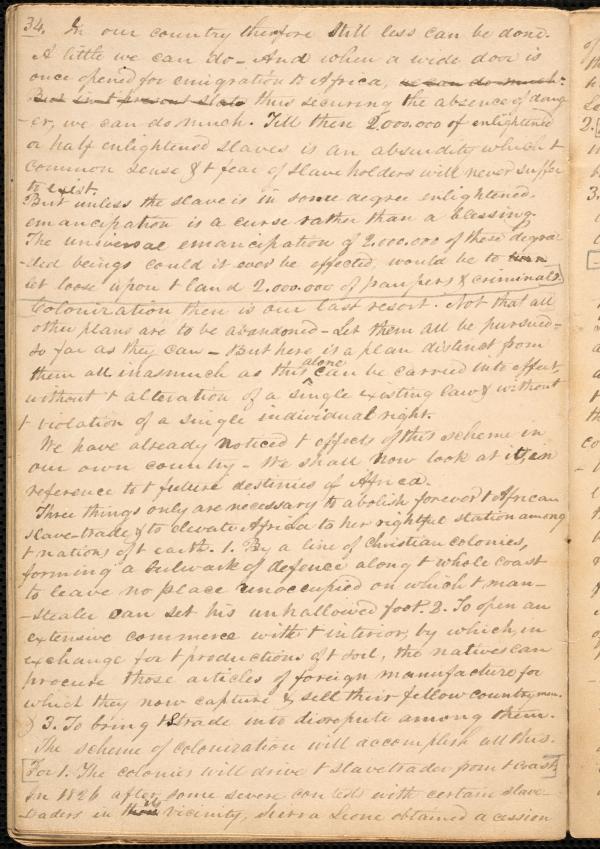 34. In our country therefore still less can be done.
A little we can do - And when a wide door is
once opened for emigration to Africa, we can do much.
But in t present state thus securing the absence of dang-
-er, we can do much. Till then 2,000,000 of enlightened
or half enlightened slaves is an absurdity which t
common sense & t fear of slave holders will never suffer
to exist.
But unless the slave is in some degree enlightened.
emancipation is a curse rather than a blessing.
The universal emancipation of 2.000.000 of these degra-
-ded beings could it ever be effected, would be to turn
let loose upon t land 2.000.000 of paupers & criminals
Colonization then is our last resort. Not that all
other plans are to be abandoned - Let them all be pursued -
so far as they can - But here is a plan distinct from
them all inasmuch as this alone can be carried into effect,
without t alteration of a single existing law & without
t violation of a single individual right.
We have already noticed t effects of this scheme in
our own country - We shall now look at it, in
reference to t future destinies of Africa.
Three things only are necessary to abolish forever t African
slave-trade & to elevate Africa to her rightful station among
t nations of t earth. 1. By a line of Christian colonies,
forming a bulwark of defence along t whole coast
to leave no place unoccupied on which t man-
-stealer can set his unhallowed foot. 2. To open an
extensive commerce with t interior, by which, in
exchange for t productions of t soil, the natives can
procure those articles of foreign manufacture for
which they now capture & sell their fellow countrymen.
3. To bring t S trade into disrepute among them.
The scheme of colonization will accomplish all this.
For 1. The colonies will drive t slavetrader from t coast
In 1826 after some severe contests with certain slave-
traders in their its vicinity, Sierra Leone obtained a cession